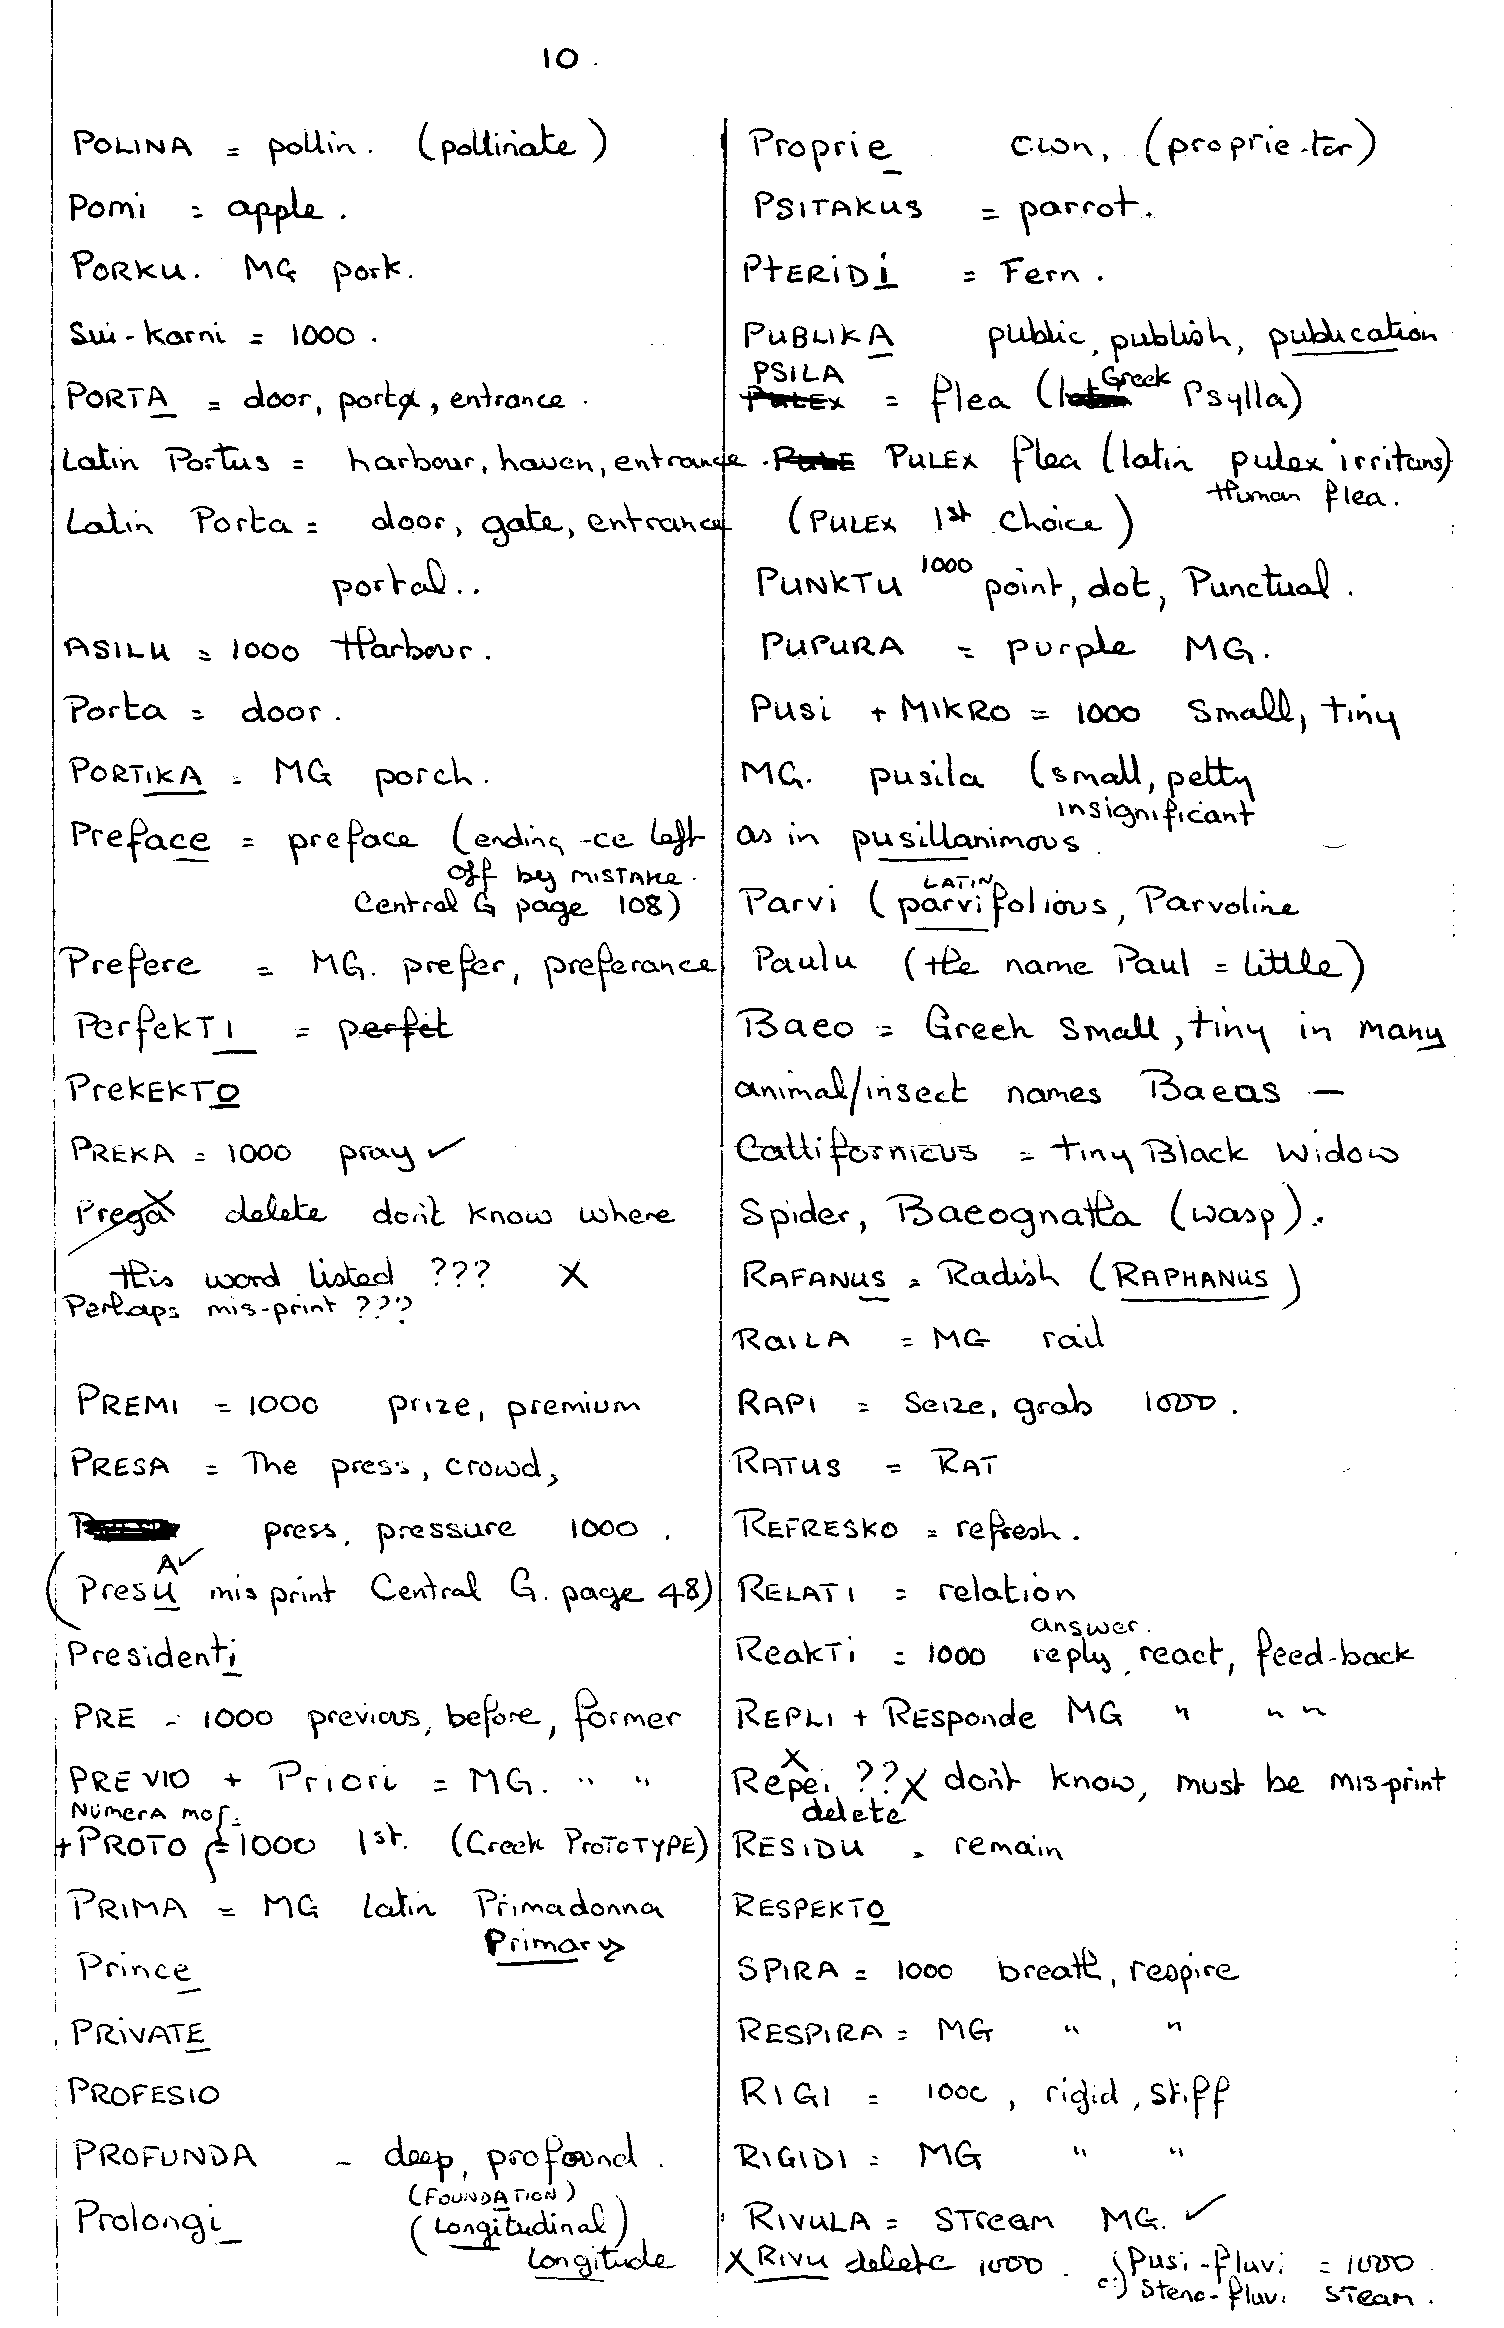 10.
POLINA = pollin. (pollinate)
Pomi = apple.
PORKU. MG pork.
Sui-karni = 1000.
PORTA = door, porta, entrance.
Latin Portus = harbour, haven, entrance.
Latin Porta = door, gate, entrance
portal..
ASILU = 1000 Harbour.
Porta = door.
PORTIKA = MG porch.
Preface = preface (ending -ce left
off by mistake.
Central G page 108)
Prefere = MG. prefer, preferance
PerfekTI = perfet
PreKEKTO
PREKA = 1000 pray ✓
Prega X delete don't know where
this word listed ??? X
Perhaps mis-print ???
PREMI = 1000 prize, premium
PRESA = The press, crowd,
press, pressure 1000.
A✓
(Presu mis print Central G. page 48)
Presidenti
PRE = 1000 previous, before, former
PREVIO + Priori = MG. " "
Numera mof.
+ PROTO = 1000 1st. (Greek PROTOTYPE)
PRIMA = MG Latin Primadonna
Primary
Prince
PRIVATE
PROFESIO
PROFUNDA = deep, profound.
(FOUNDATION)
Prolongi (Longitudinal)
Longitude
Proprie own, (proprie-tor)
PSITAKUS = parrot.
PtERIDI = Fern.
PUBLIKA public, publish, publication
PSILA
PULEX = flea (Greek Psylla)
PULE PULEX flea (latin pulex irritans)
Human flea.
(PULEX 1st Choice)
PUNKTU 1000 point, dot, Punctual.
PUPURA = purple MG.
Pusi + MIKRO = 1000 Small, tiny
MG. pusila (small, petty
insignificant
as in pusillanimous.
LATIN
Parvi (parvifolious, Parvoline
Paulu (the name Paul = little)
Baeo = Greek Small, tiny in many
animal/insect names Baeas —
Callifornicus = tiny Black Widow
Spider, Baeognatha (wasp).
RAFANUS = Radish (RAPHANUS)
RAILA = MG rail
RAPI = Seize, grab 1000.
RATUS = RAT
REFRESKO = refresh.
RELATI = relation
answer.
ReakTi = 1000 reply, react, feed-back
REPLI + RESponde MG " " "
X
Repei ??X don't know, must be mis-print
delete
RESIDU = remain
RESPEKTO
SPIRA = 1000 breath, respire
RESPIRA = MG " "
RIGI = 1000, rigid, stiff
RIGIDI = MG " "
RIVULA = STream MG. ✓
X RIVU delete 1000. Pusi-fluvi = 1000
Steno-fluvi STeam.